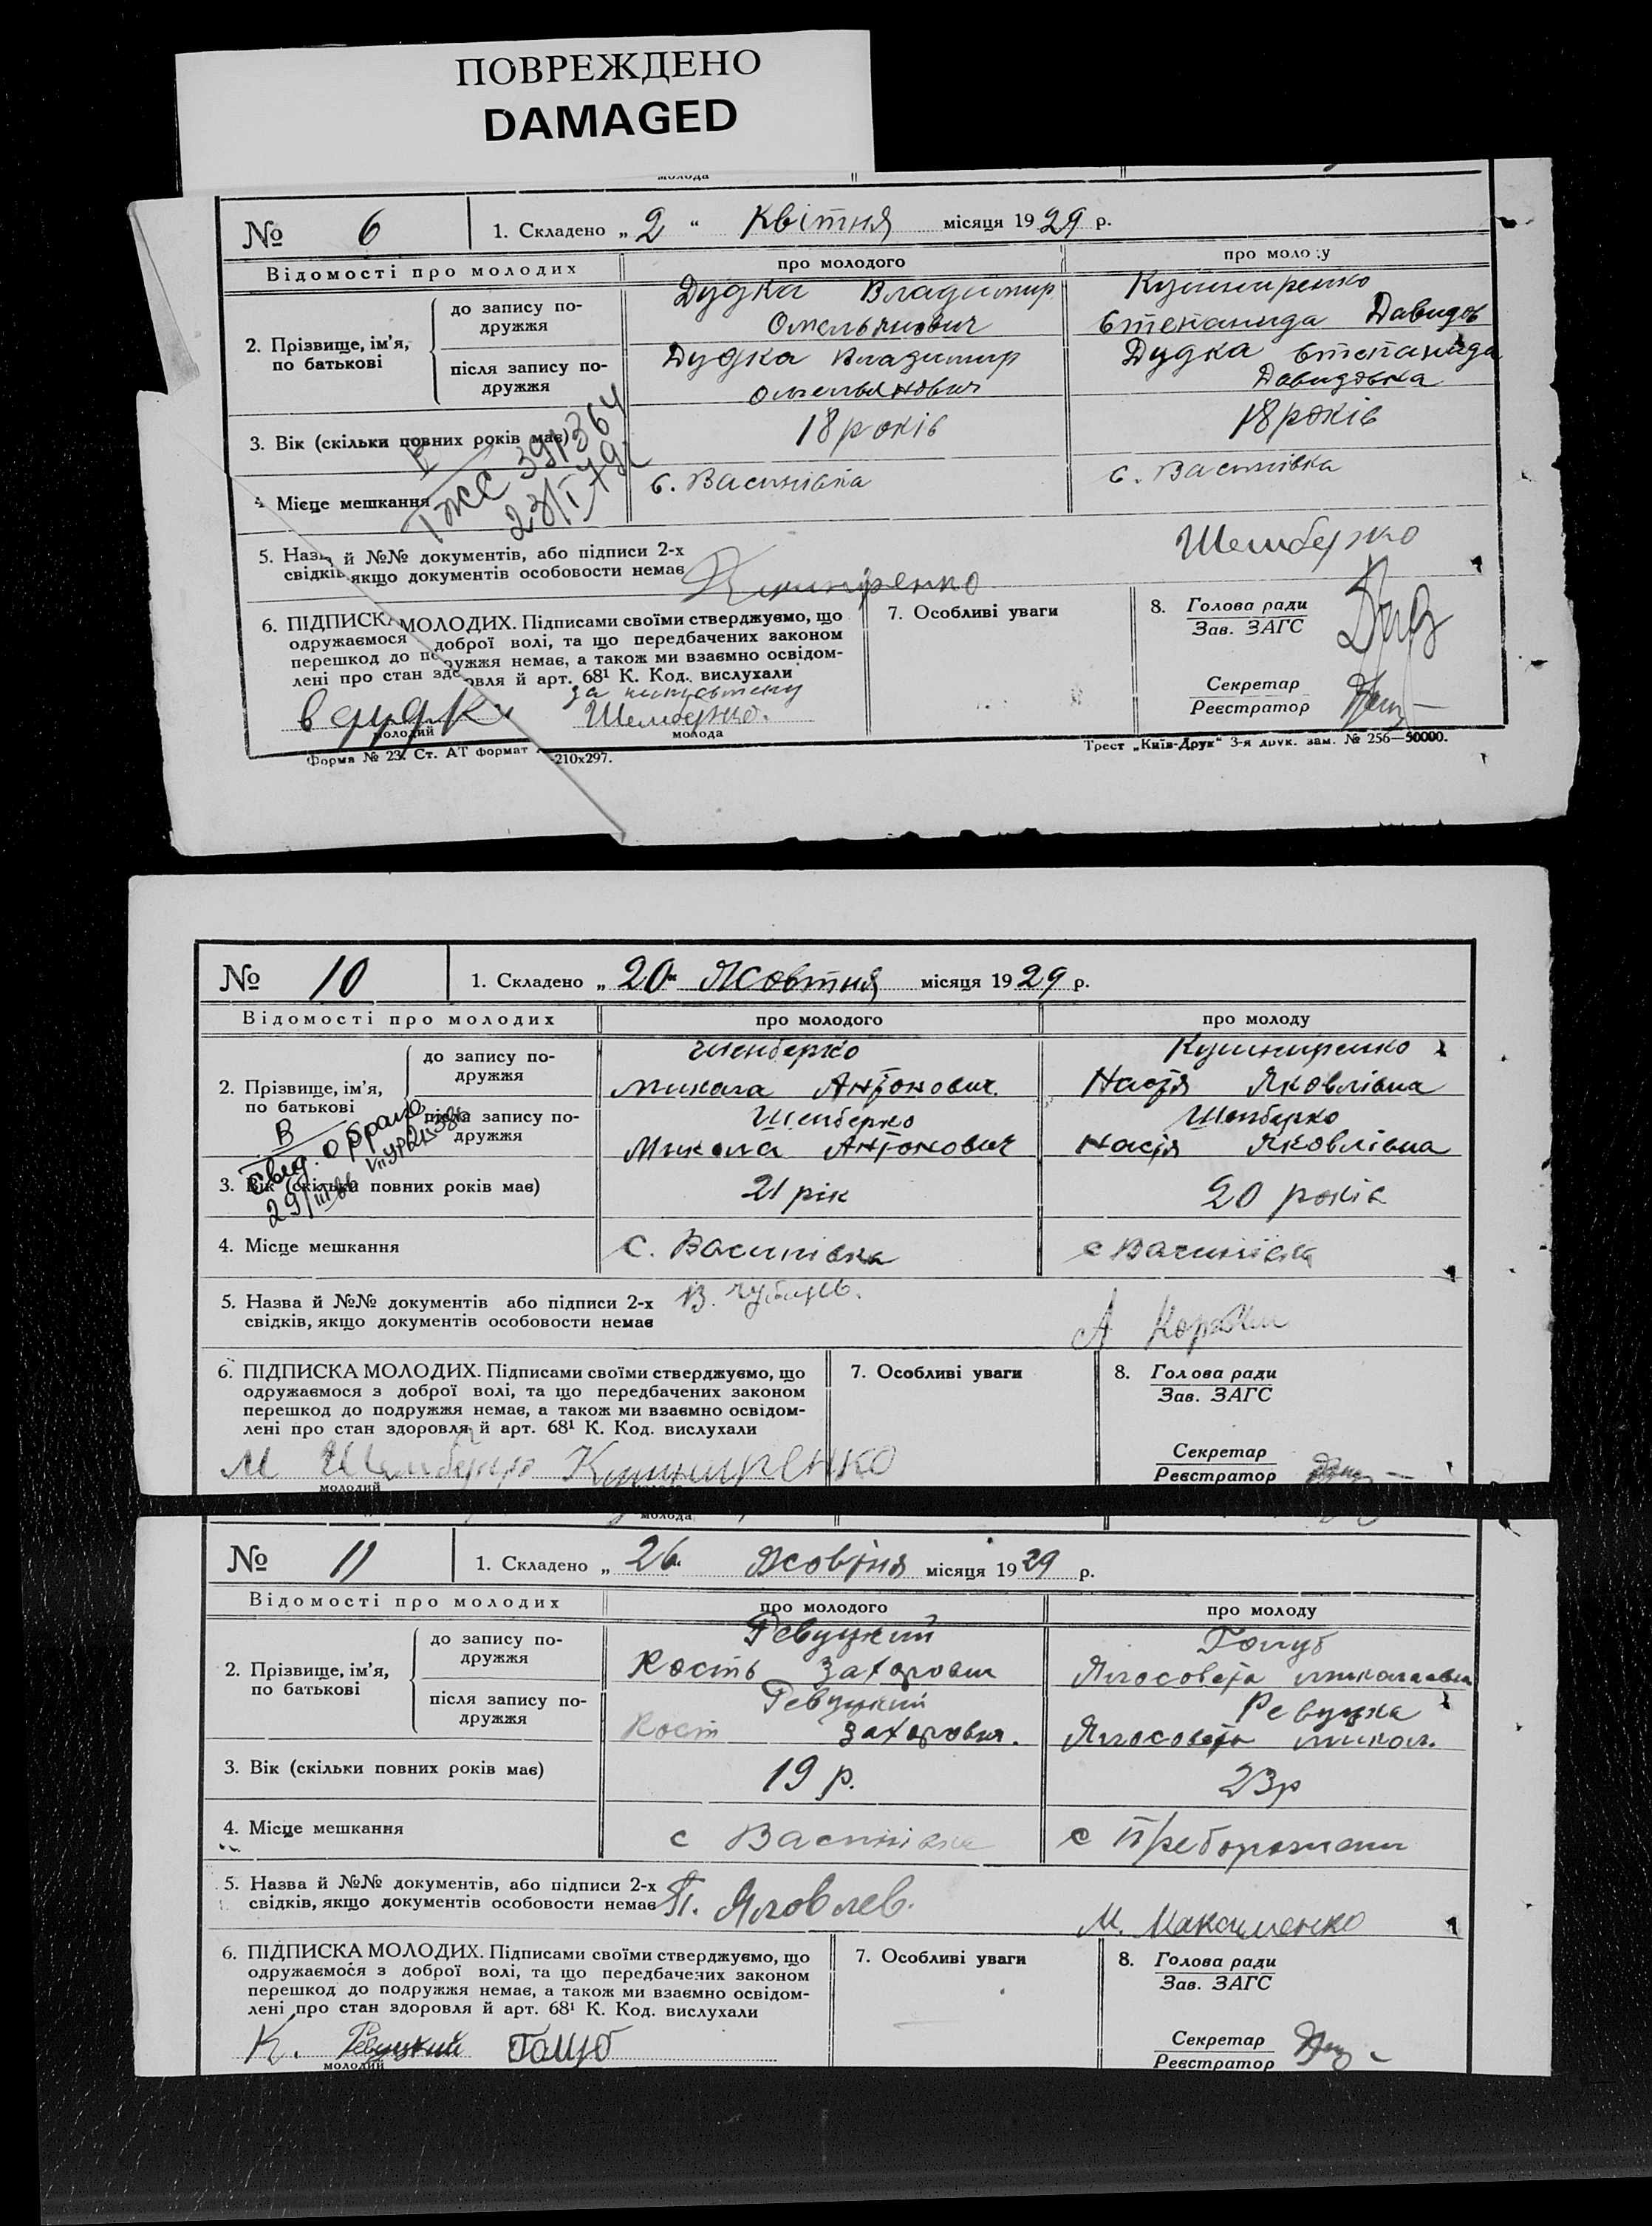 ПОВРЕЖДЕНО
DAMAGED
молода
№ 6 1. Складено „ 2 “ Квітня місяця 1929 р.
Відомості про молодих про молодого про молоду
2. Прізвище, ім'я, по батькові
до запису подружжя
Дудка Владимир
Омельянович
Кушниренко
Степанида Давидов
після запису подружжя
Дудка Владимир
Омельянович
Дудка Степанида
Давидовна
3. Вік (скільки повних років має) 18 років 18 років
4 Місце мешкання с. Василівка с. Василівка
23/I
5. Назва й №№ документів, або підписи 2-х
свідків якщо документів особовости немає
Кушниренко Шемберко
6. ПІДПИСКА МОЛОДИХ. Підписами своїми стверджуємо, що
одружаємося доброї волі, та що передбачених законом
перешкод до подружжя немає, а також ми взаємно освідом-
лені про стан здоровля й арт. 68¹ К. Код. вислухали
7. Особливі уваги
8. Голова ради
Зав. ЗАГС
Секретар
Реєстратор
за
в дудка Шемберко.
молодий молода
Форма № 23. Ст. АТ формат 210х297.
Трест „Київ-Друк“ 3-я друк. зам. № 256—50000.
№ 10 1. Складено „ 20 “ Жовтня місяця 1929 р.
Відомості про молодих про молодого про молоду
2. Прізвище, ім'я,
по батькові
до запису по-
дружжя
Шенберко
Микола Антонович
Кушниренко
Настя Яковлівна
після запису по-
дружжя
Шенберко
Микола Антонович
Шенберко
Настя Яковлівна
В
свид. о браке
29/III
3. Вік (скільки повних років має) 21 рік 20 років
4. Місце мешкання с. Василівка с Василівка
5. Назва й №№ документів або підписи 2-х
свідків, якщо документів особовости немає
В. А
6. ПІДПИСКА МОЛОДИХ. Підписами своїми стверджуємо, що
одружаємося з доброї волі, та що передбачених законом
перешкод до подружжя немає, а також ми взаємно освідом-
лені про стан здоровля й арт. 68¹ К. Код. вислухали
7. Особливі уваги
8. Голова ради
Зав. ЗАГС
Секретар
Реєстратор
М Шемберко Кушниренко
молодий
молода
№ 11 1. Складено „ 26 “ Жовтня місяця 1929 р.
Відомості про молодих про молодого про молоду
2. Прізвище, ім'я,
по батькові
до запису по-
дружжя
Ревуцкий
Кость Захарович
Голуб
Ялосовета Миколаевна
після запису по-
дружжя
Ревуцкий
Кост Захарович.
Ревуцка
Ялосовета Микол.
3. Вік (скільки повних років має) 19 р. 23р
4. Місце мешкання с Василівка с
5. Назва й №№ документів, або підписи 2-х
свідків, якщо документів особовости немає
П. Яковлев. М. Максименко
6. ПІДПИСКА МОЛОДИХ. Підписами своїми стверджуємо, що
одружаємося з доброї волі, та що передбачених законом
перешкод до подружжя немає, а також ми взаємно освідом-
лені про стан здоровля й арт. 68¹ К. Код. вислухали
7. Особливі уваги
8. Голова ради
Зав. ЗАГС
Секретар
Реєстратор
К. Ревуцкий Голуб
молодий